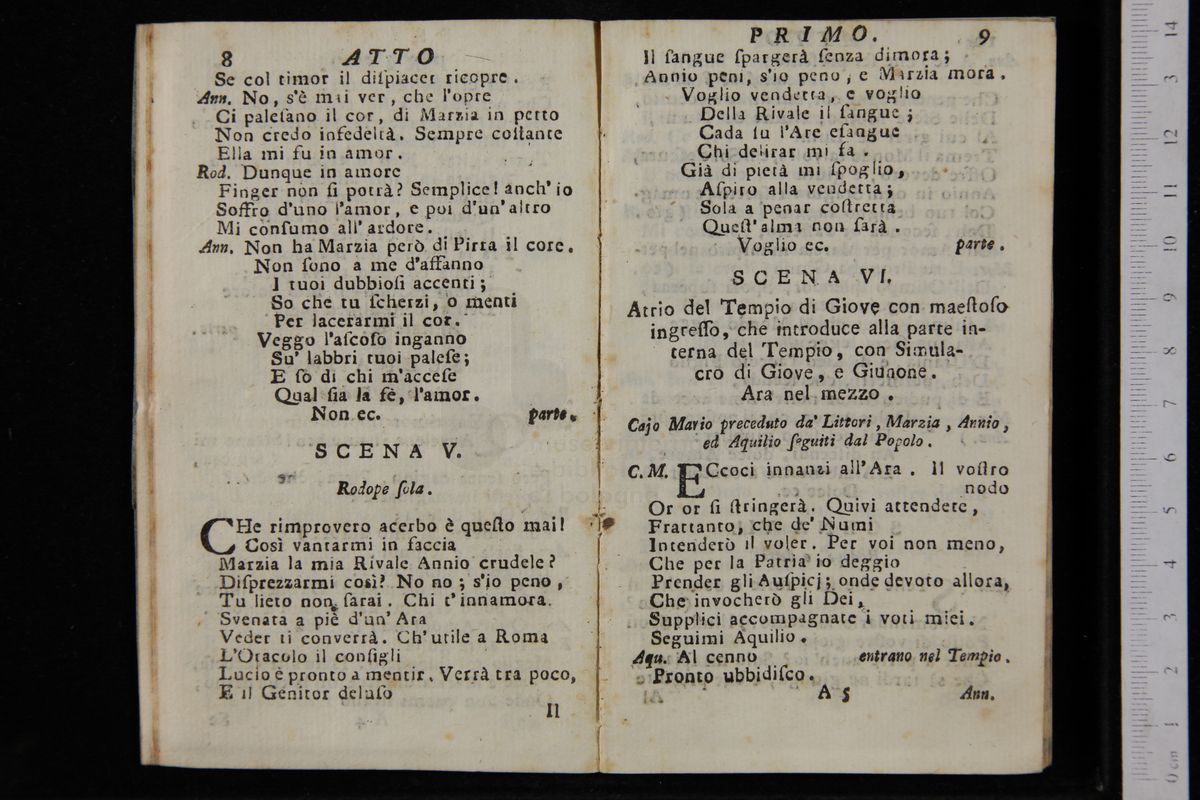 8 ATTO
Se col timor il diſpiacer ricopre.
Ann. No, s'è mai ver, che l'opre
Ci paleſano il cor, di Marzia in petto
Non credo infedeltà. Sempre coſtante
Ella mi fu in amor.
Rod. Dunque in amore
Finger non ſi potrà? Semplice! anch'io
Soffro d'uno l'amor, e poi d'un'altro
Mi conſumo all'ardore.
Ann. Non ha Marzia però di Pirra il core.
Non ſono a me d'affanno
I tuoi dubbioſi accenti;
So che tu ſcherzi, o menti
Per lacerarmi il cor.
Veggo l'aſcoſo inganno
Su' labbri tuoi paleſe;
E ſo di chi m'acceſe
Qual ſia la fè, l'amor.
Non ec. parte.
SCENA V.
Rodope ſola.
CHe rimprovero acerbo è queſto mai!
Così vantarmi in faccia
Marzia la mia Rivale Annio crudele?
Diſprezzarmi così? No no; s'io peno,
Tu lieto non ſarai. Chi t'innamora.
Svenata a piè d'un'Ara
Veder ti converrà. Ch'utile a Roma
L'Oracolo il conſigli
Lucio è pronto a mentir. Verrà tra poco,
E il Genitor deluſo
Il
PRIMO. 9
Il ſangue ſpargerà ſenza dimora;
Annio peni, s'io peno, e Marzia mora.
Voglio vendetta, e voglio
Della Rivale il ſangue;
Cada ſu l'Are eſangue
Chi delirar mi fa.
Già di pietà mi ſpoglio,
Aſpiro alla vendetta;
Sola a penar coſtretta
Queſt'alma non ſarà.
Voglio ec. parte.
SCENA VI.
Atrio del Tempio di Giove con maeſtoſo
ingreſſo, che introduce alla parte in-
terna del Tempio, con Simula-
cro di Giove, e Giunone.
Ara nel mezzo.
Cajo Mario preceduto da' Littori, Marzia, Annio,
ed Aquilio ſeguiti dal Popolo.
C. M. ECcoci innanzi all'Ara. Il voſtro
nodo
Or or ſi ſtringerà. Quivi attendete,
Frattanto, che de' Numi
Intenderò il voler. Per voi non meno,
Che per la Patria io deggio
Prender gli Auſpicj; onde devoto allora,
Che invocherò gli Dei,
Supplici accompagnate i voti miei.
Seguimi Aquilio.
Aqu. Al cenno entrano nel Tempio.
Pronto ubbidiſco.
A 5 Ann.
0 cm 1 2 3 4 5 6 7 8 9 10 11 12 3 14